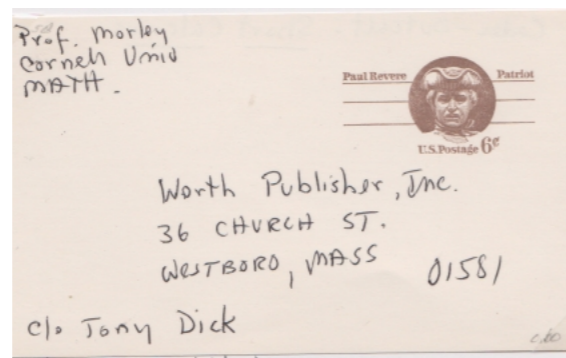 Prof. Morley
Cornell Univ
MATH.
Paul Revere Patriot
U.S. Postage 6¢
Worth Publisher, Inc.
36 CHURCH ST.
WESTBORO, MASS 01581
c/o Tony Dick